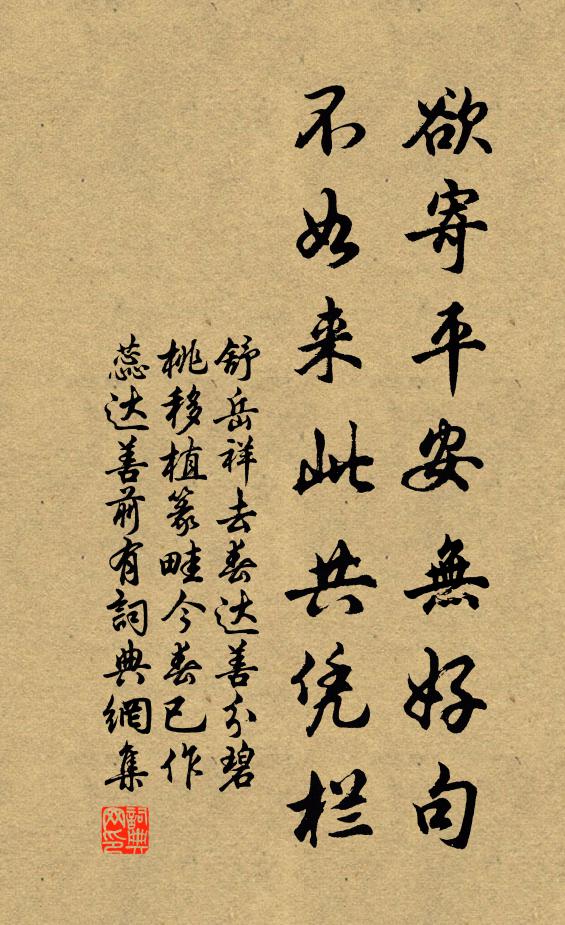 欲寄平安無好句
不如来此共凭栏
舒岳祥去春达善分碧
桃移植篆畦今春已作
蕊达善前有詞典網集
詞典网印